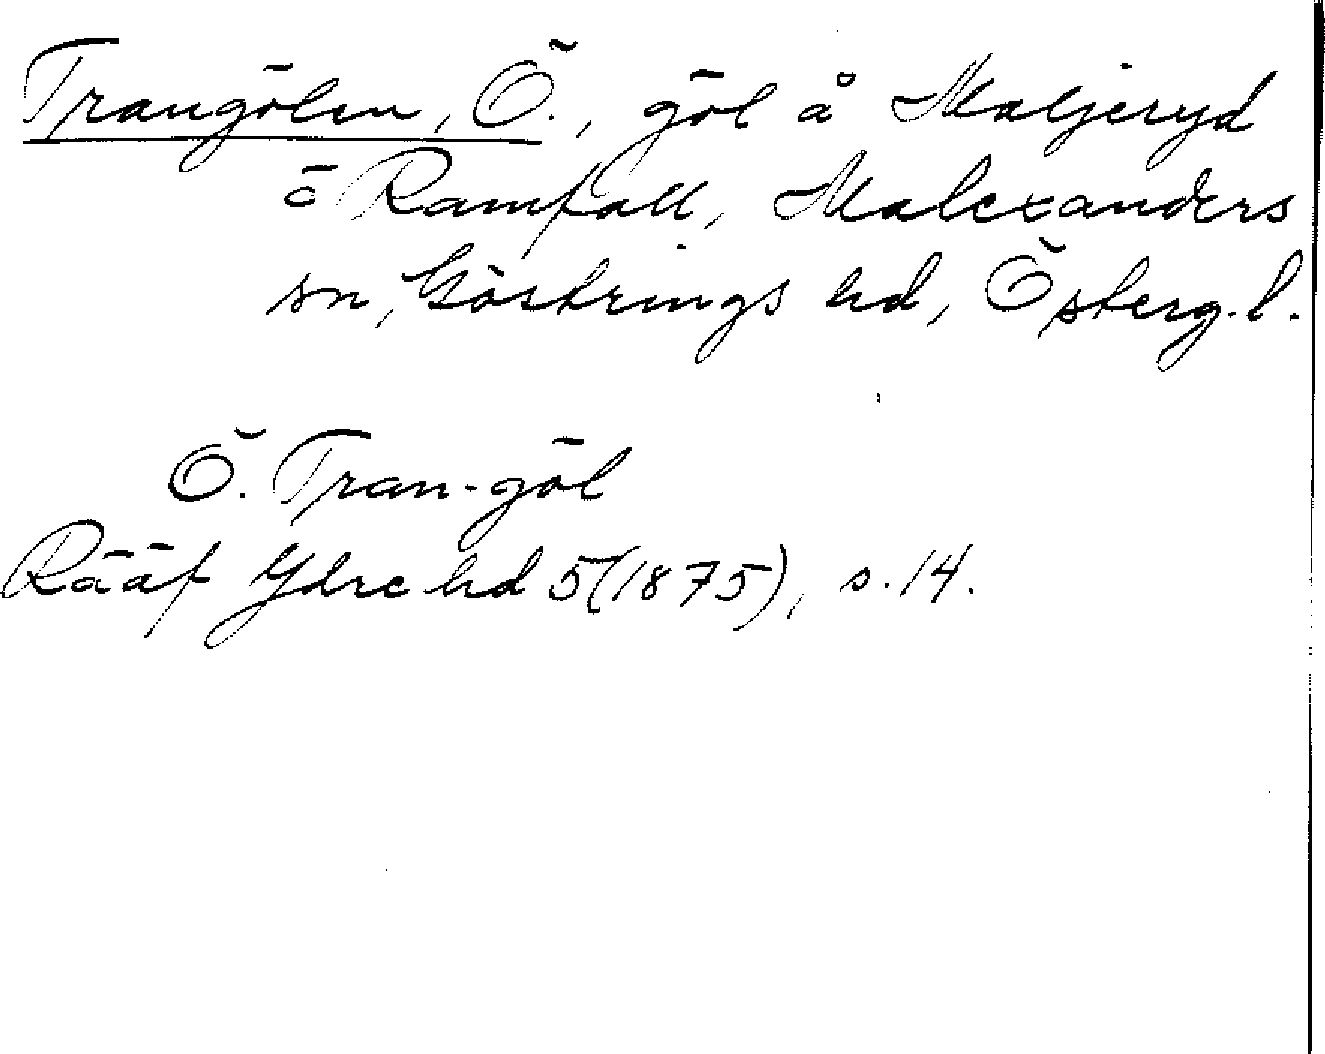 Trangölen, Ö., göl å Maljeryd
ö Ramfall, Malexanders
sn, Göstrings hd, Österg. l.
Ö. Tran-göl
Rääf Ydre hd 5 (1875), s. 14.